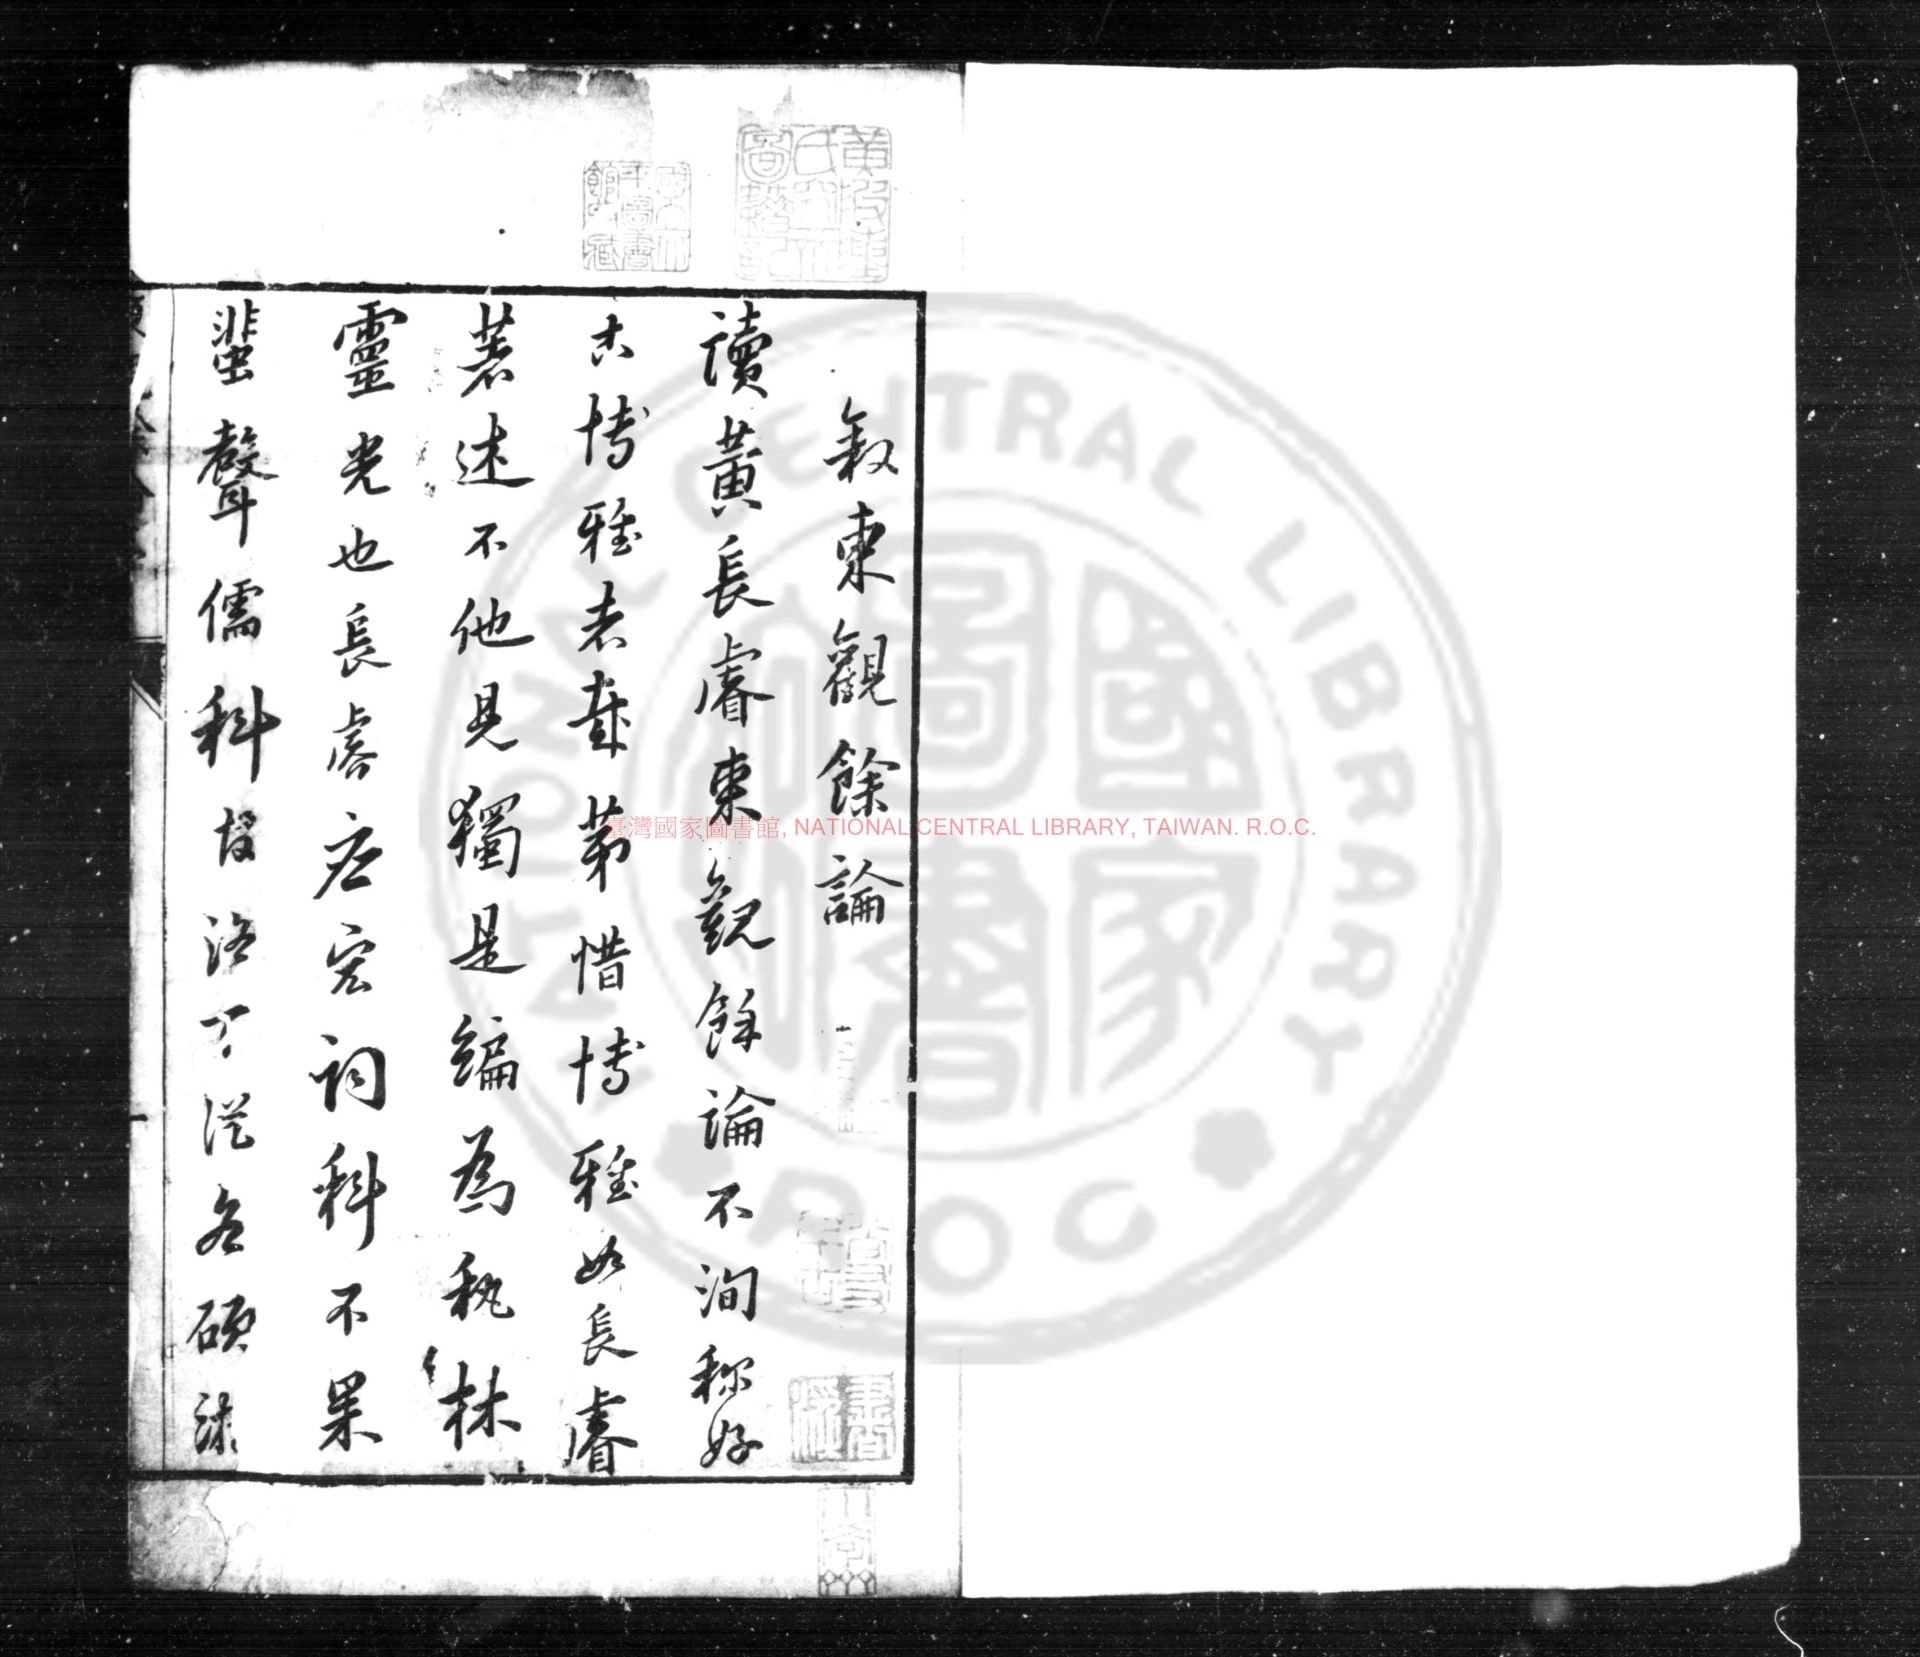 敘東觀餘論
讀黃長睿東觀餘論不洵稱好
古博雅者哉第惜博雅如長睿
著述不他見獨是編為秇林
靈光也長睿應宏詞科不果
蜚聲儒科
臺灣國家圖書館, NATIONAL CENTRAL LIBRARY, TAIWAN. R.O.C.
NATIONAL CENTRAL LIBRARY
R.O.C
國家圖書